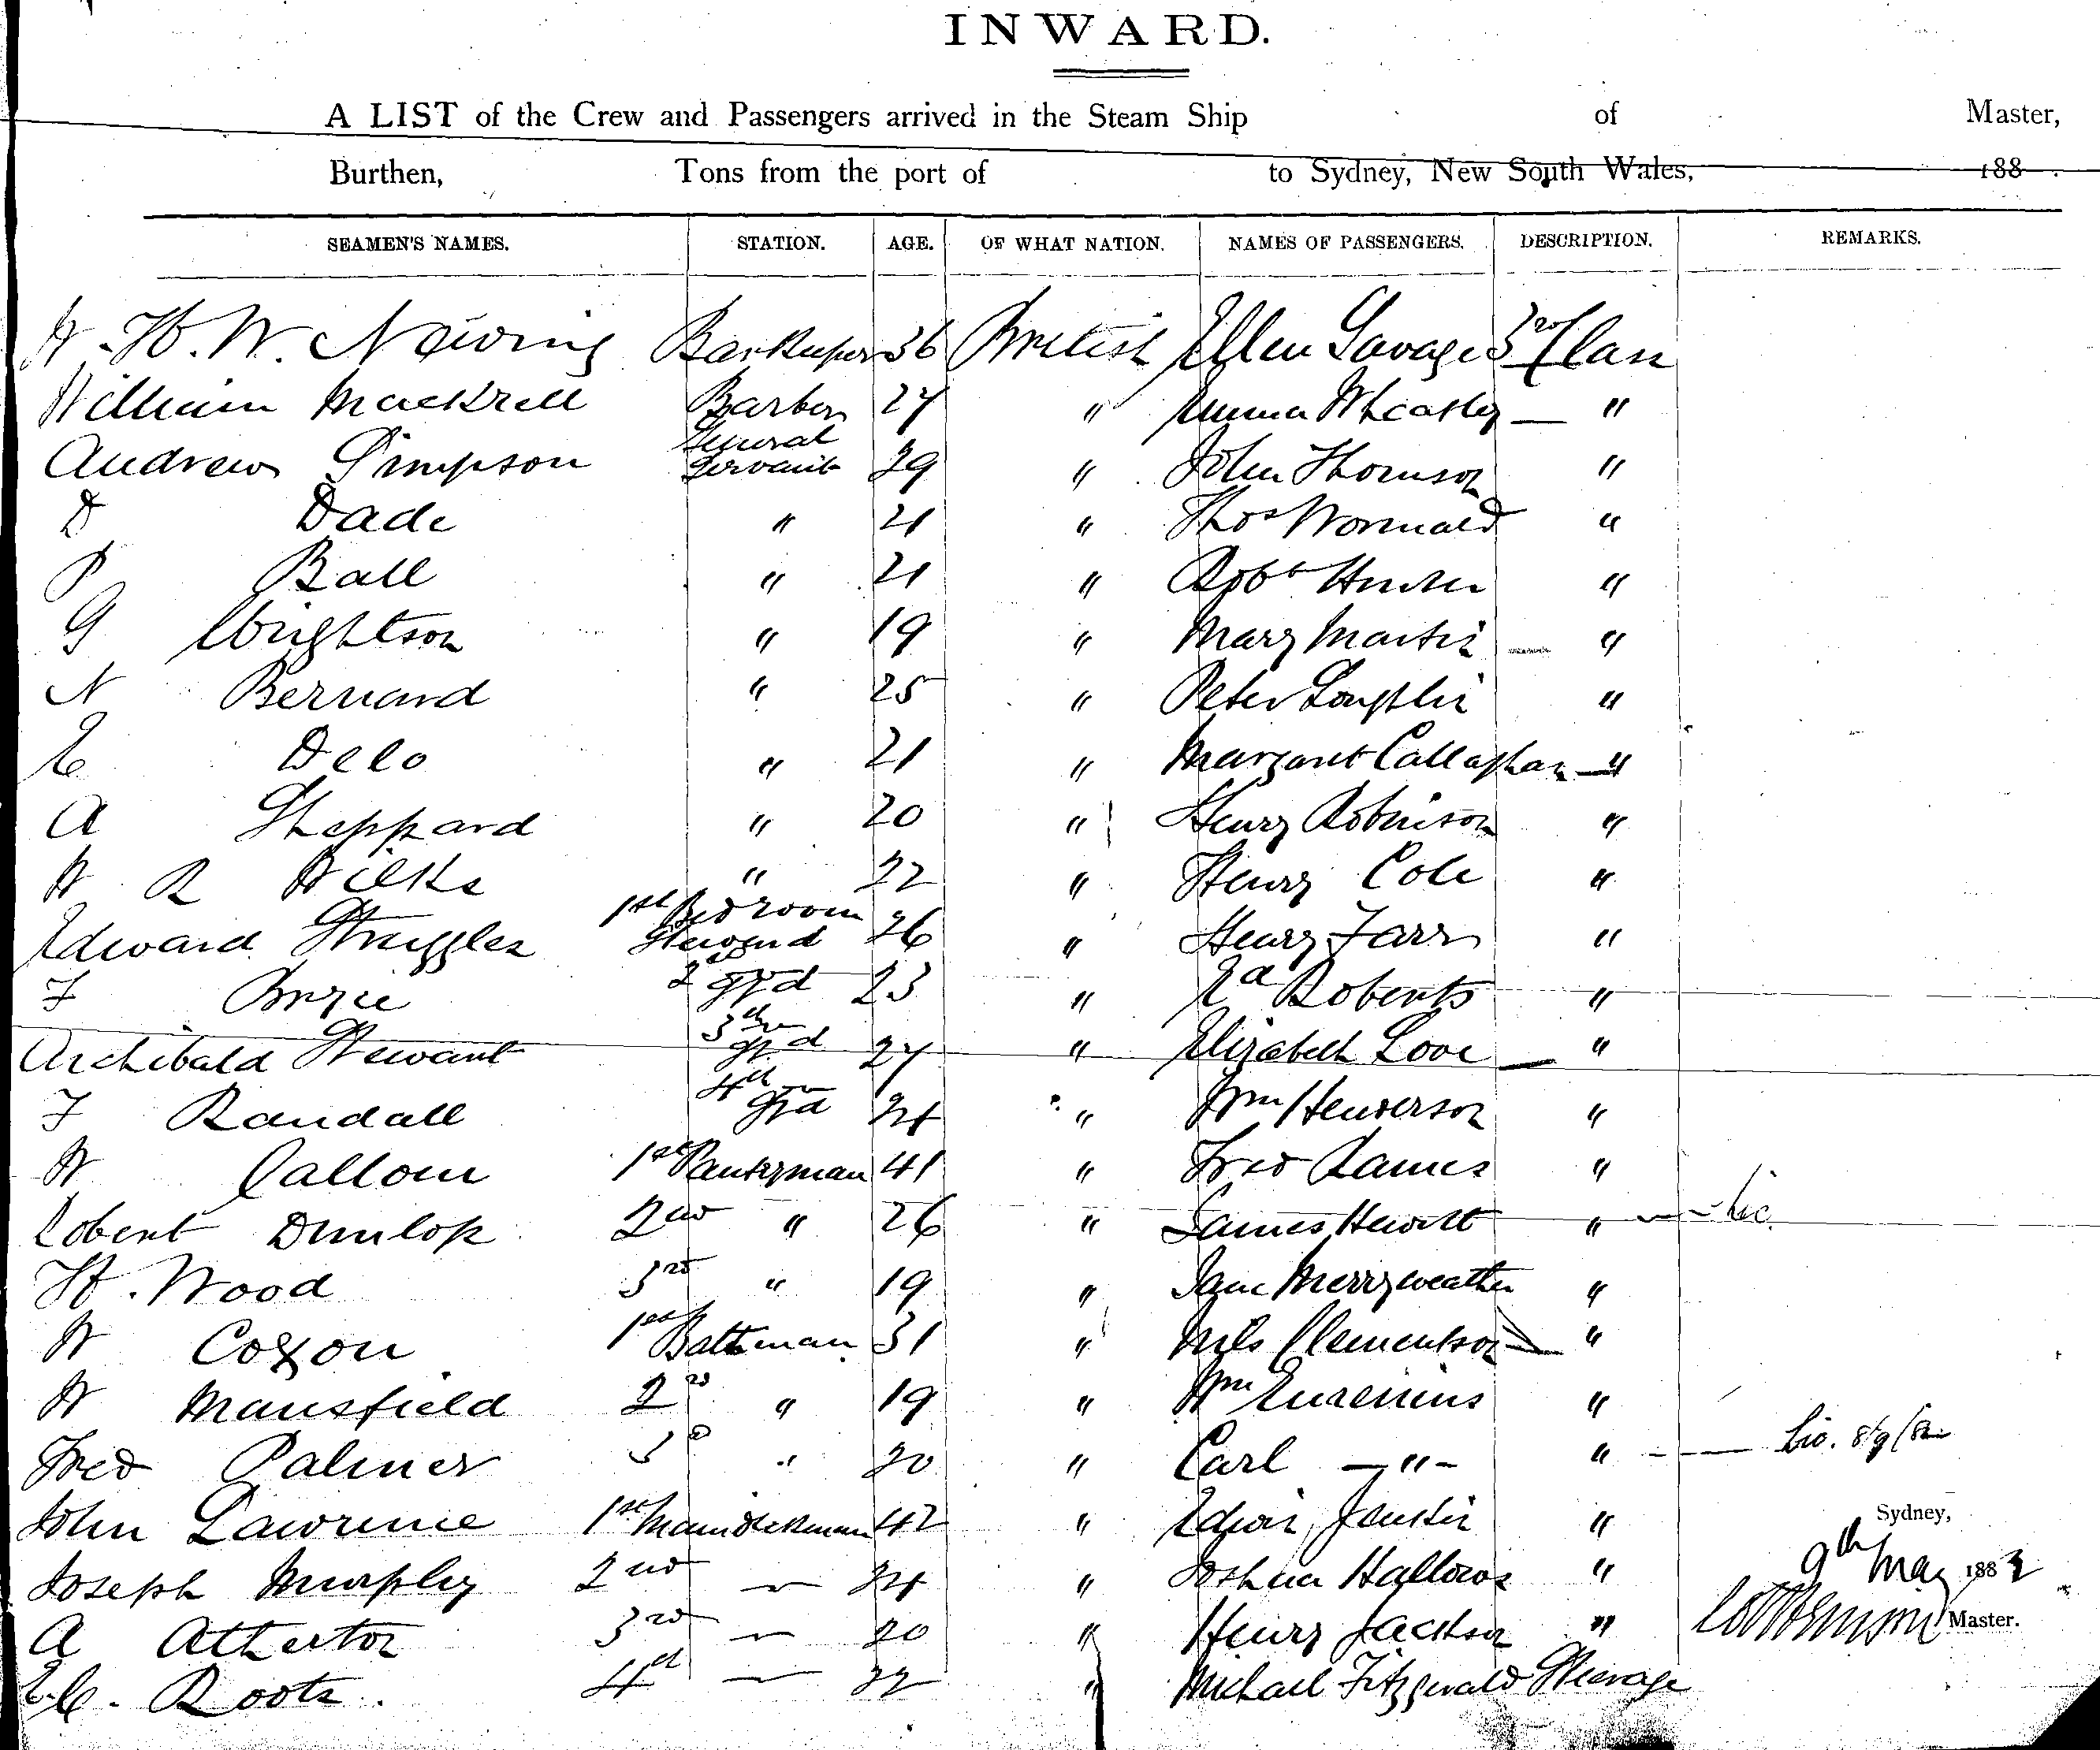 INWARD.
A LIST of the Crew and Passengers arrived in the Steam Ship of Master,
Burthen, Tons from the port of to Sydney, New South Wales, 188 .
SEAMEN'S NAMES. STATION. AGE. OF WHAT NATION. NAMES OF PASSENGERS. DESCRIPTION. REMARKS.
H. W. Newing Barkeeper 36 British Ellen Savage 3rd Class
William Mackrell Barber 27 " Emma Wheatley — "
Andrew Simpson General servant 29 " John Thomson "
D Dade " 21 " Thos Wormald "
P Ball " 21 " Robt Hunter "
G Wrightson " 19 " Mary Martin — "
N Bernard " 25 " Peter Loughlin "
E Delo " 21 " Margaret Callaghan — "
A Sheppard " 20 " Henry Robinson "
W R Wilks " 22 " Henry Cole "
Edward Struggles 1st Bedroom Steward 26 " Henry Farr "
F 2nd grd 23 " Ed Roberts "
Archibald Stewart 3rd grd 27 " Elizabeth Love — "
F Randall 4th grd 24 " Wm Henderson "
W Callow 1st Pantryman 41 " Fred Eames "
Robert Dunlop 2nd " 26 " James Hewitt "
H. Wood 3rd " 19 " Jane Merryweather "
W Coxon 1st Bathman 31 " Nils Clementson — "
W Mansfield 2nd " 19 " Wm Eurenius "
Fred Palmer 3d " 20 " Carl — " — "
John Lawrence 1st 42 " Edwin "
Joseph Murphy 2nd — 24 " Joshua Hallows "
A Atherton 3rd — 20 " Henry Jackson "
E.C. Roots. 4th — 22 " Michael Fitzgerald Steerage
Sydney,
9th May 1882
Master.